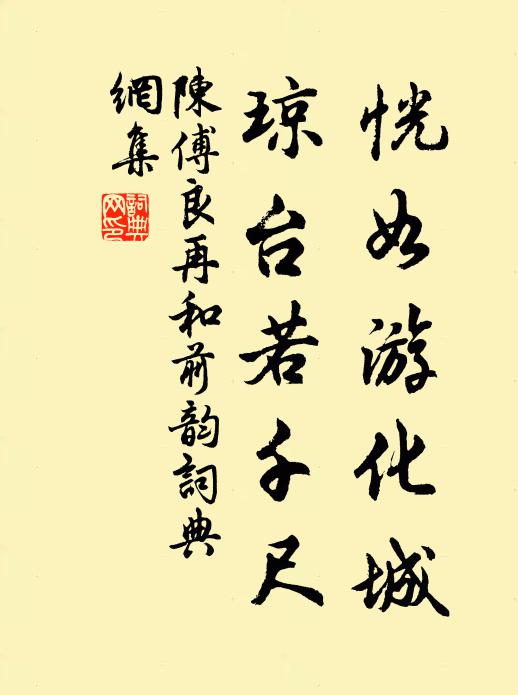 恍如游化城
琼台若千尺
陳傅良再和前韵詞典
網集
詞典
网印